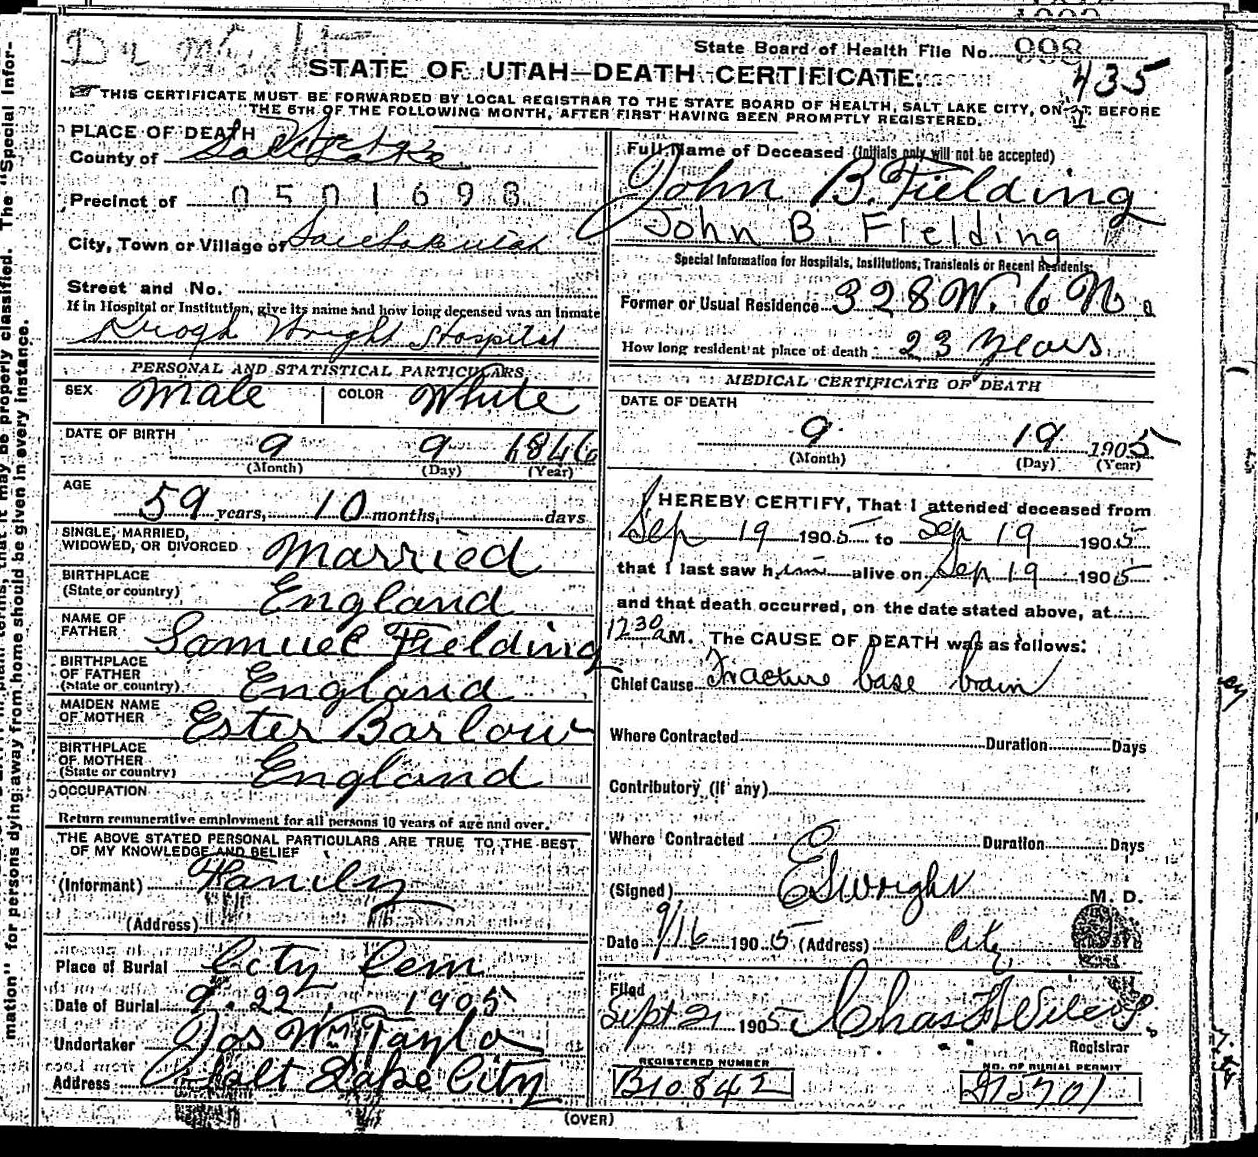 Dr Wright
State Board of Health File No. 998
435
STATE OF UTAH—DEATH CERTIFICATE.
THIS CERTIFICATE MUST BE FORWARDED BY LOCAL REGISTRAR TO THE STATE BOARD OF HEALTH, SALT LAKE CITY, ON OR BEFORE
THE 5TH OF THE FOLLOWING MONTH, AFTER FIRST HAVING BEEN PROMPTLY REGISTERED.
PLACE OF DEATH
County of Salt Lake
Precinct of 0501698
City, Town or Village of Salt Lake Utah
Street and No.
If in Hospital or Institution, give its name and how long deceased was an inmate
Krogh Wright Hospital
PERSONAL AND STATISTICAL PARTICULARS
SEX Male COLOR White
DATE OF BIRTH 9 9 1846
(Month) (Day) (Year)
AGE
59 years, 10 months, days
SINGLE, MARRIED,
WIDOWED, OR DIVORCED Married
BIRTHPLACE
(State or country) England
NAME OF
FATHER Samuel Fielding
BIRTHPLACE
OF FATHER
(State or country) England
MAIDEN NAME
OF MOTHER Ester Barlow
BIRTHPLACE
OF MOTHER
(State or country) England
OCCUPATION
Return remunerative employment for all persons 10 years of age and over.
THE ABOVE STATED PERSONAL PARTICULARS ARE TRUE TO THE BEST
OF MY KNOWLEDGE AND BELIEF
(Informant) Family
(Address)
Place of Burial City Cem
Date of Burial 9. 22, 1905
Undertaker Jos Wm Taylor
Address Salt Lake City
Full Name of Deceased (Initials only will not be accepted)
John B. Fielding
John B. Fielding
Special Information for Hospitals, Institutions, Transients or Recent Residents:
Former or Usual Residence 328 W. 6 N.
How long resident at place of death 23 years
MEDICAL CERTIFICATE OF DEATH
DATE OF DEATH
9 19 1905
(Month) (Day) (Year)
I HEREBY CERTIFY, That I attended deceased from
Sep 19 1905 to Sep 19 1905
that I last saw him alive on Sep 19 1905
and that death occurred, on the date stated above, at
12 30 a M. The CAUSE OF DEATH was as follows:
Chief Cause Fracture base brain
Where Contracted Duration Days
Contributory (If any)
Where Contracted Duration Days
(Signed) E S Wright M. D.
Date 9/16 1905 (Address) City
Filed
Sept 21 1905 Chas
Registrar
REGISTERED NUMBER
B10842
NO. OF BURIAL PERMIT
(OVER)
mation" for persons dying away from home should be given in every instance.